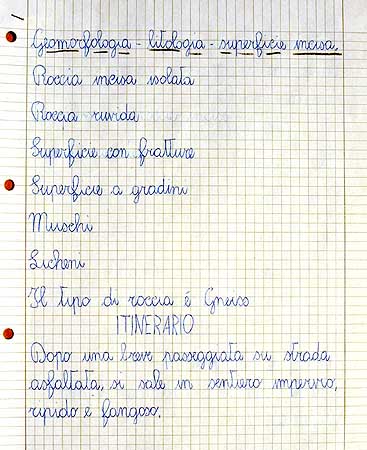 Geomorfologia - litologia - superficie incisa.
Roccia incisa isolata
Roccia ruvida
Superficie con fratture
Superficie a gradini
Muschi
Licheni
Il tipo di roccia é Gneiss
ITINERARIO
Dopo una breve passeggiata su strada
asfaltata, si sale in sentiero impervio,
ripido e fangoso.